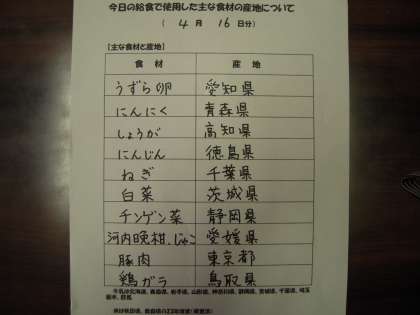 今日の給食で使用した主な食材の産地について
( 4 月 16 日分)
【主な食材と産地】
食 材 産 地
うずら卵 愛知県
にんにく 青森県
しょうが 高知県
にんじん 徳島県
ねぎ 千葉県
白菜 茨城県
チンゲン菜 静岡県
河内晩柑、じゃこ 愛媛県
豚肉 東京都
鶏ガラ 鳥取県